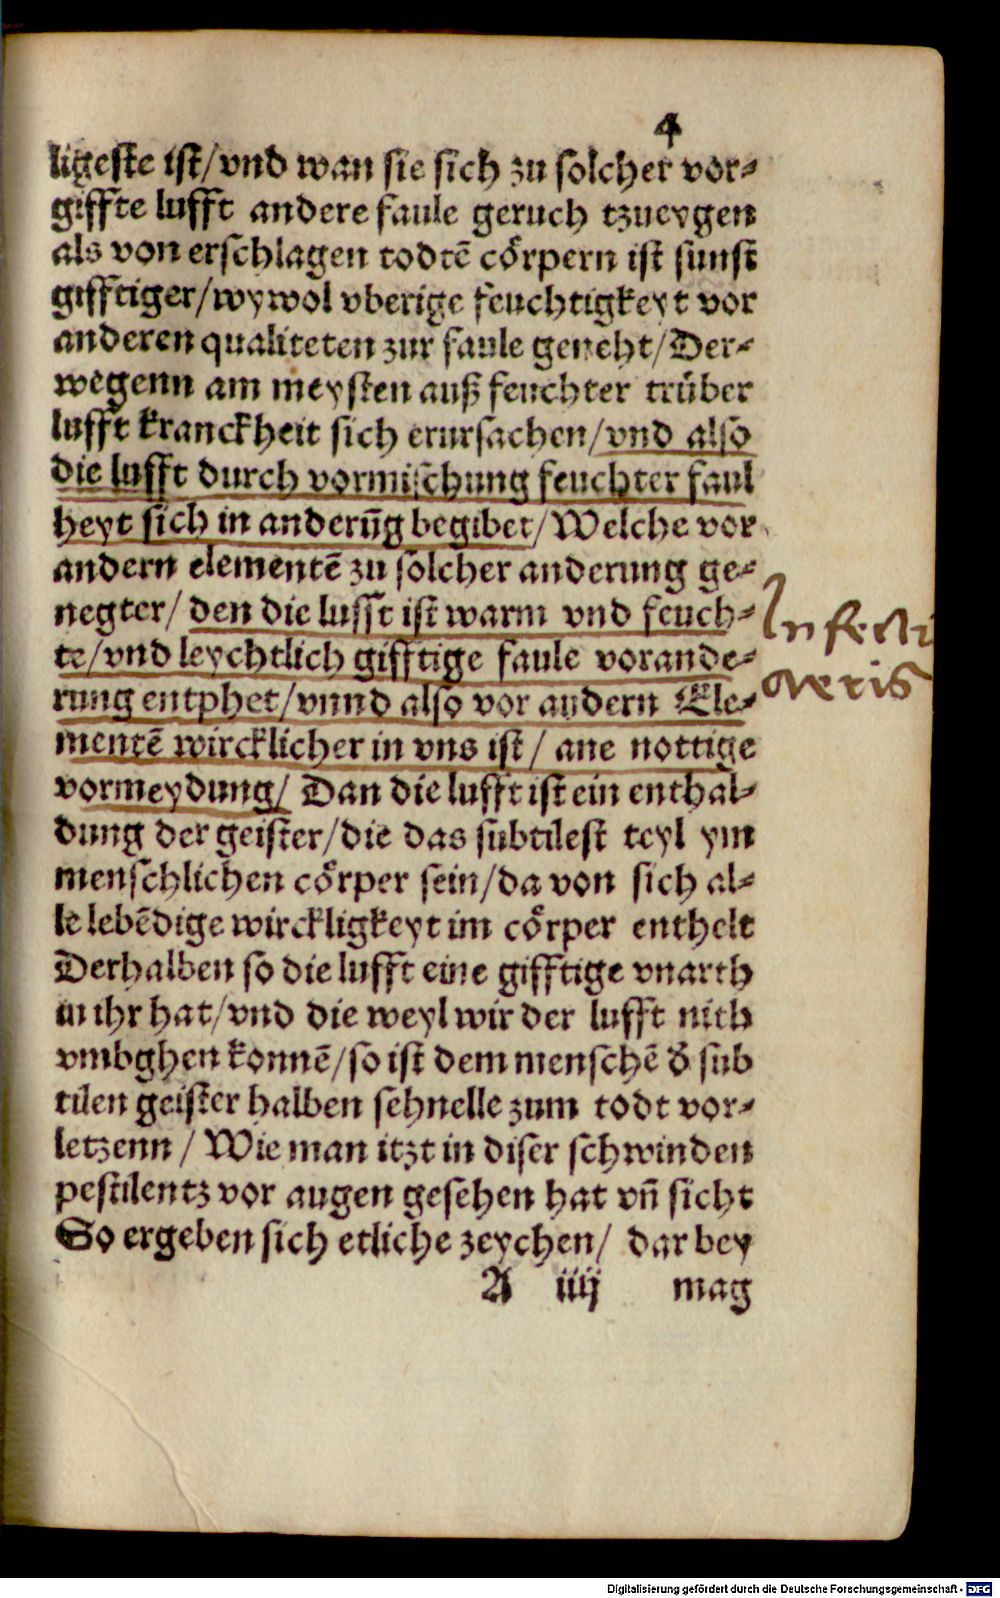 4
ligeste ist/vnd wan sie sich zu solcher vor⸗
giffte lufft andere faule geruch tzueygen
als von erschlagen todtē cörpern ist sunst
gifftiger/wywol vberige feuchtigkeyt vor
anderen qualiteten zur faule geneht/Der⸗
wegenn am meysten auß feuchter trüber
lufft kranckheit sich erursachen/vnd also
die lufft durch vormischung feuchter faul
heyt sich in anderūg begibet/Welche vor
andern elementē zu solcher anderung ge⸗
negter/den die lufft ist warm vnd feuch⸗
te/vnd leychtlich gifftige faule vorande⸗
rung entphet/vnnd also vor andern Ele⸗
mentē wircklicher in vns ist/ ane nottige
vormeydung/ Dan die lufft ist ein enthal⸗
dung der geister/die das subtilest teyl ym
menschlichen cörper sein/da von sich al⸗
le lebēdige wirckligkeyt im cörper enthelt
Derhalben so die lufft eine gifftige vnarth
in ihr hat/vnd die weyl wir der lufft nith
vmbghen konnē/so ist dem menschē d̄ sub
tilen geister halben sehnelle zum todt vor⸗
letzenn / Wie man itzt in diser schwinden
pestilentz vor augen gesehen hat vn̄ sicht
So ergeben sich etliche zeychen/ dar bey
A iiij mag
Infecti
aeris
Digitalisierung gefördert durch die Deutsche Forschungsgemeinschaft - DFG